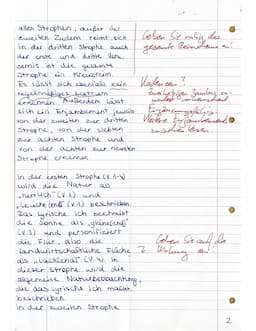 allen Strophen, außer der
zweiten Zudem reimt sich
in der dritten Strophe auch
der erste und dritte Vers,
somit ist die gesamte
Strophe ein Kreuzreim.
Es lässt sich ebenfalls kein
regelmäßiges Metrum
erkennen. Außerdem lässt
sich ein Enjambement jeweils
von der zweiten zur dritten
Strophe, von der siebten
zur achten Strophe und
von der achten zur neunten
Strophe erkennen.
In der ersten Strophe (V. 1-4)
wird die Natur als
„herrlich" (V. 1) und
„leuchtend" (V. 1) beschrieben.
Das lyrische Ich beschreibt
die Sonne als „glänzend"
(V. 3) und personifiziert
die Flur, also die
landwirtschaftliche Fläche
als „lachend" (V. 4). In
dieser Strophe wird die
allgemeine Naturbeobachtung,
die das lyrische Ich macht,
beschrieben.
In der zweiten Strophe
Geben Sie ruhig das
gesamte Reimschema an!
Kadenzen?
Gehen Sie auf die
Wirkung ein!
2